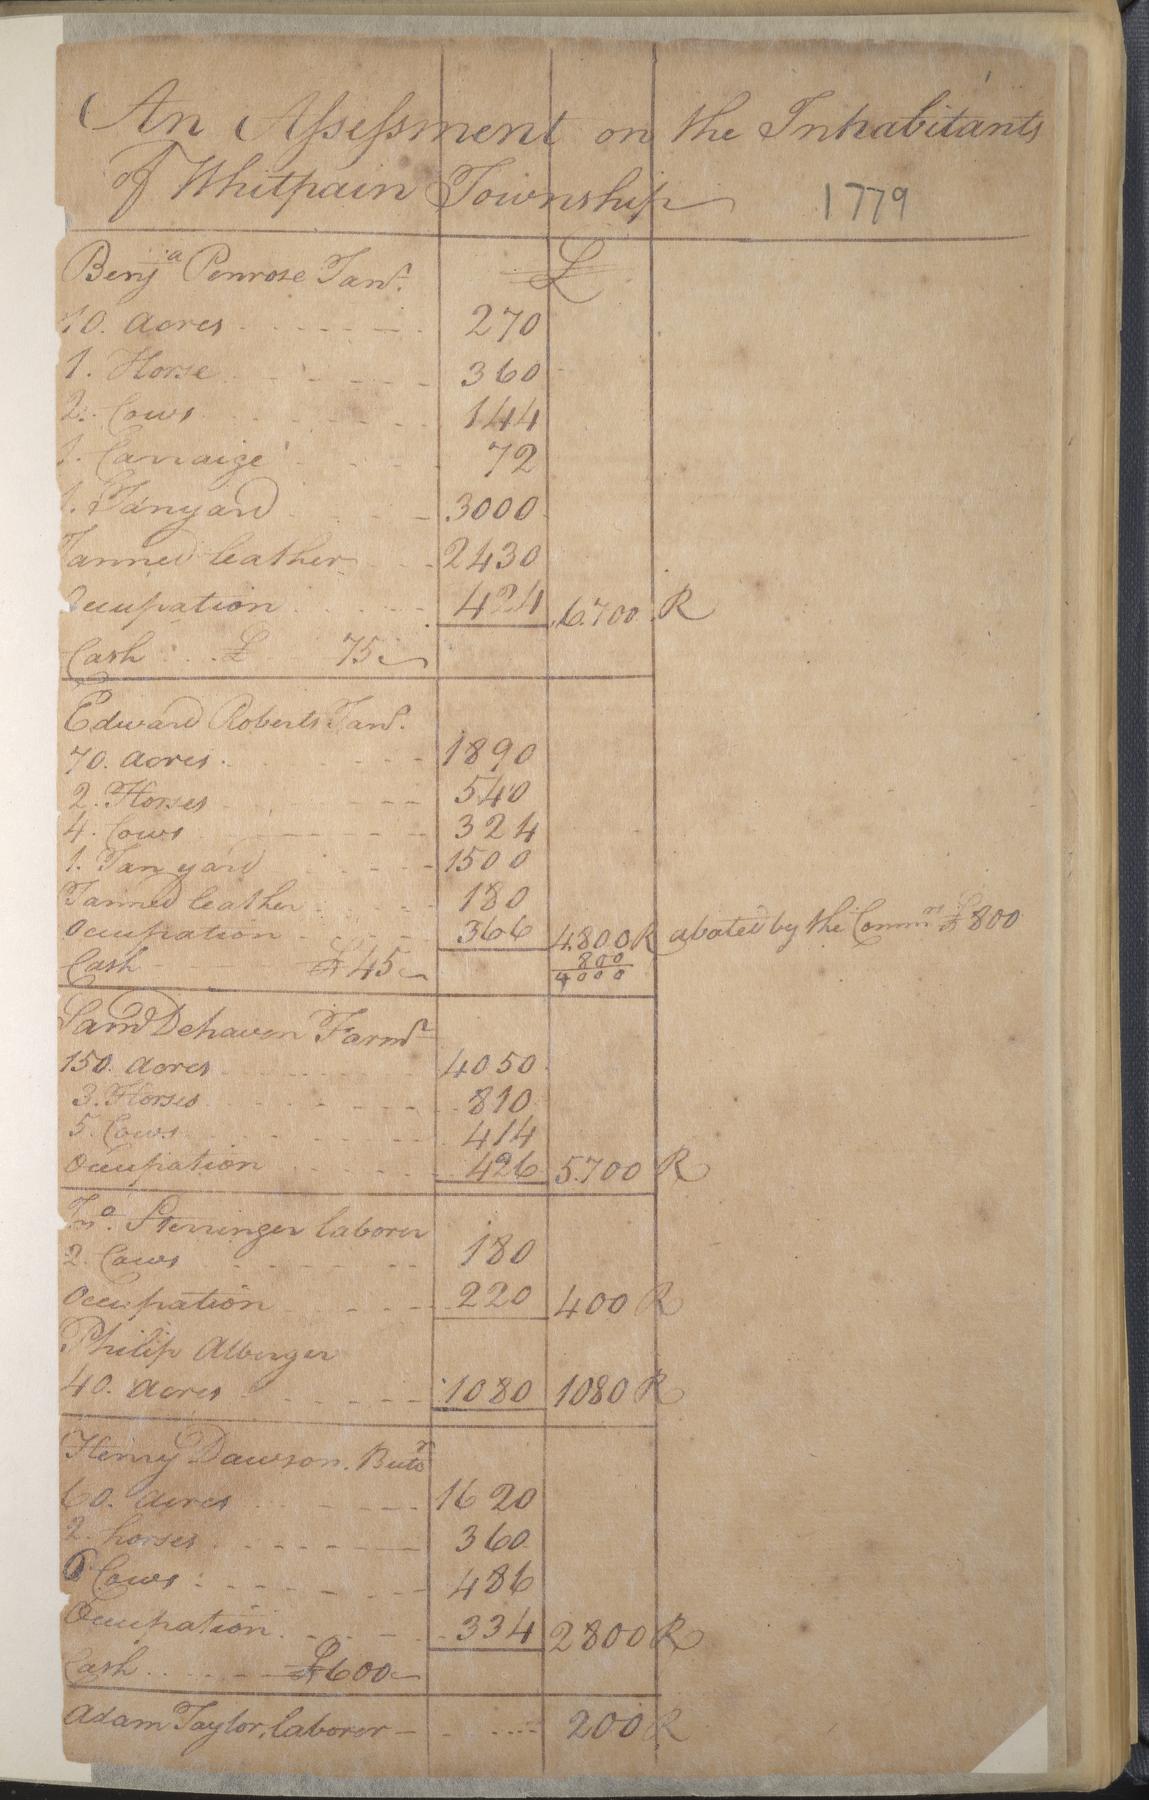 An Assessment on the Inhabitants
of Whitpain Township 1779
£
Benjᵃ Penrose Tanʳ.
10. Acres 270
1. Horse 360
2. Cows 144
1. Carraige 72
1. Tanyard 3000
Tanned leather 2430
Occupation 424 6700 R
Cash £ 75
Edward Roberts Tanʳ.
70. Acres 1890
2. Horses 540
4. Cows 324
1. Tanyard 1500
Tanned leather 180
Occupation 366 4800 R abated by the Commʳˢ £800
800
Cash £45 4000
Samˡ Dehaven Farmʳ
150. Acres 4050
3. Horses 810
5. Cows 414
Occupation 426 5700 R
Jnᵒ. laborer
2. Cows 180
Occupation 220 400 R
Philip Alberger
40. Acres 1080 1080 R
Henry Dawson. Butʳ
60. Acres 1620
2. horses 360
6 Cows 486
Occupation 334 2800 R
Cash £600
Adam Taylor, laborer 200 R